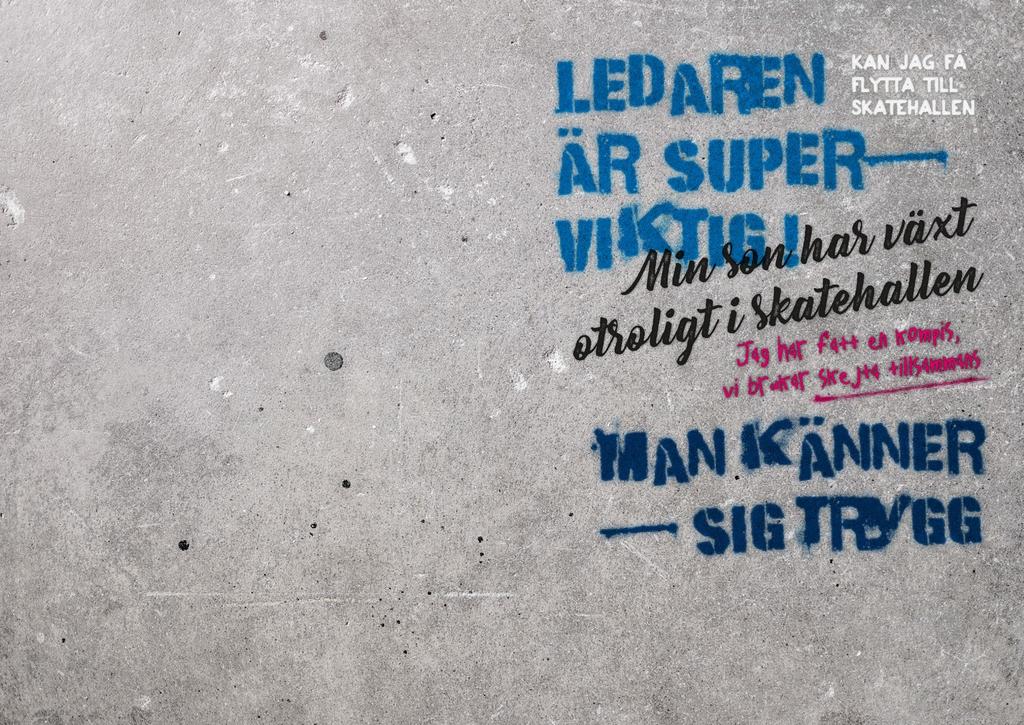 LEDAREN
ÄR SUPER
VIKTIG!
KAN JAG FÅ
FLYTTA TILL
SKATEHALLEN
Min son har växt
otroligt i skatehallen
Jag har fått en kompis,
vi brukar skejta tillsammans
MAN KÄNNER
SIG TRYGG